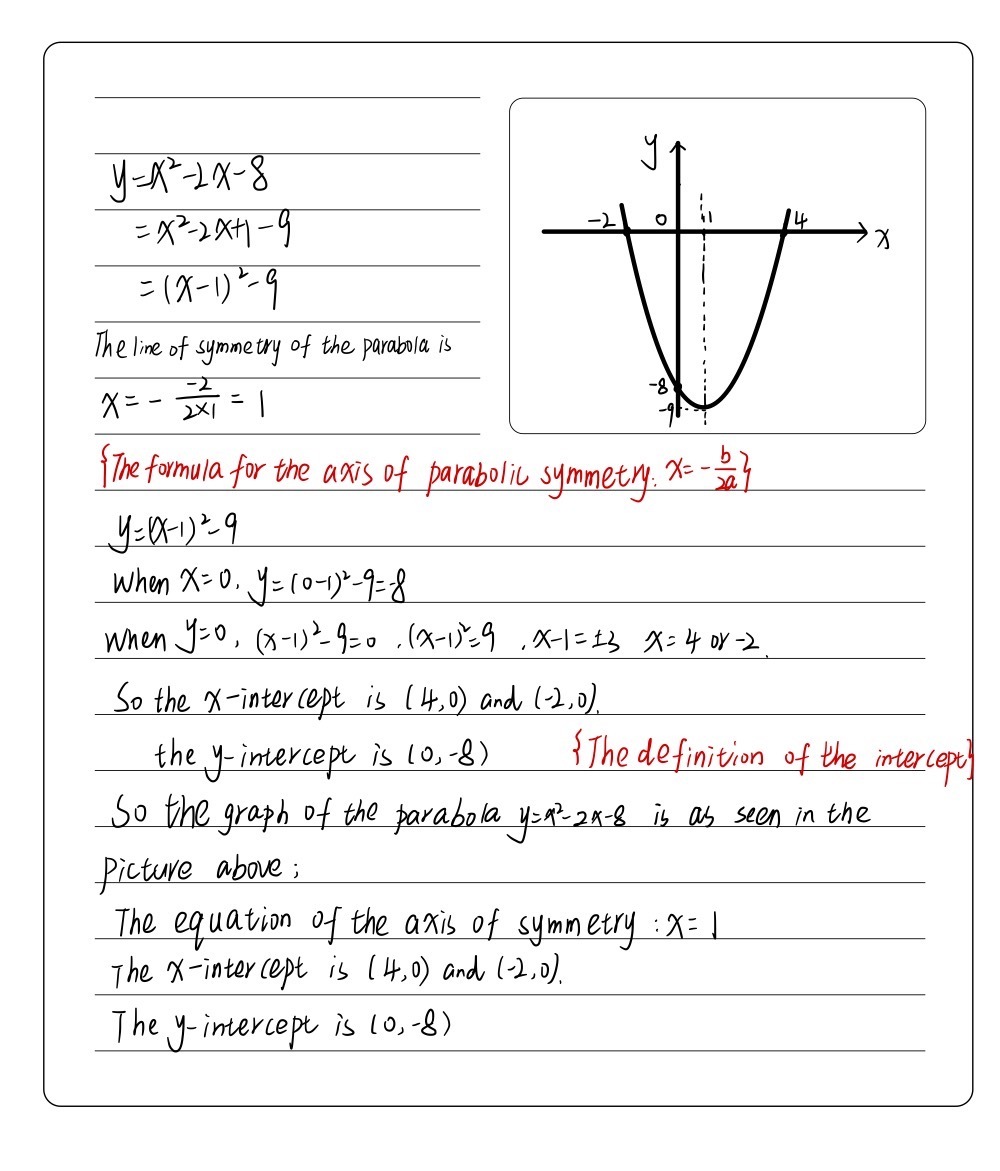 y=x²-2x-8
=x²-2x+1-9
=(x-1)²-9
The line of symmetry of the parabola is
x=- -2/2×1 = 1
y
-2
0
1
4
x
-8
-9
{The formula for the axis of parabolic symmetry: x=-b/2a}
y=(x-1)²-9
When x=0, y=(0-1)²-9=-8
When y=0, (x-1)²-9=0, (x-1)²=9, x-1=±3 x=4 or -2.
So the x-intercept is (4,0) and (-2,0).
the y-intercept is (0,-8) {The definition of the intercept}
So the graph of the parabola y=x²-2x-8 is as seen in the
picture above;
The equation of the axis of symmetry: x=1
The x-intercept is (4,0) and (-2,0).
The y-intercept is (0,-8)